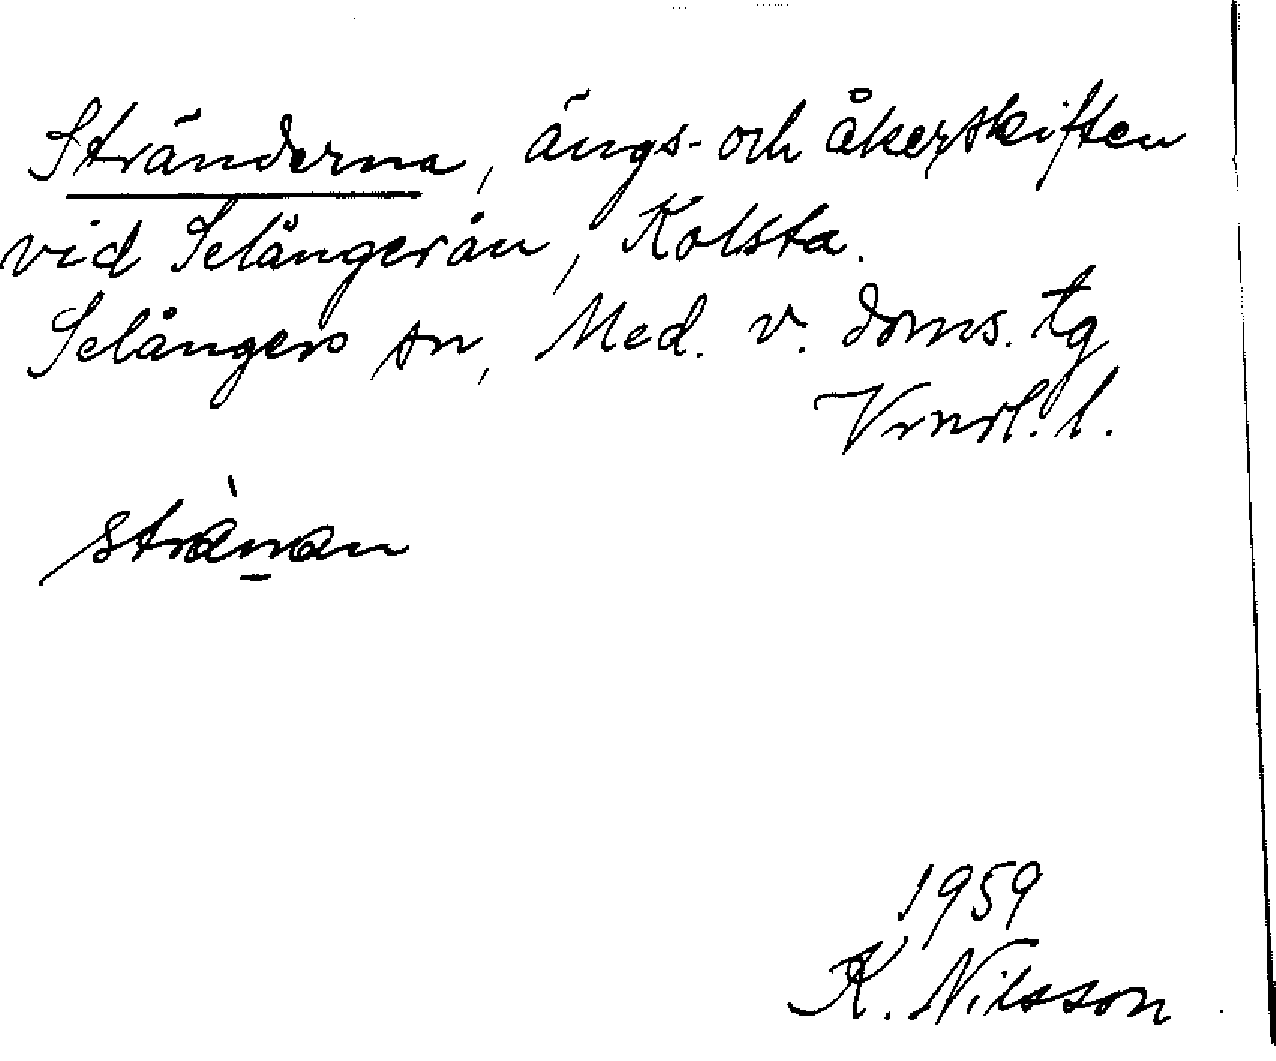 Stränderna, ängs- och åkerskiften
vid Selångerån, Kolsta.
Selångers sn, Med. v. doms. tg
Vrnrl. l.
strænæn
1959
K. Nilsson